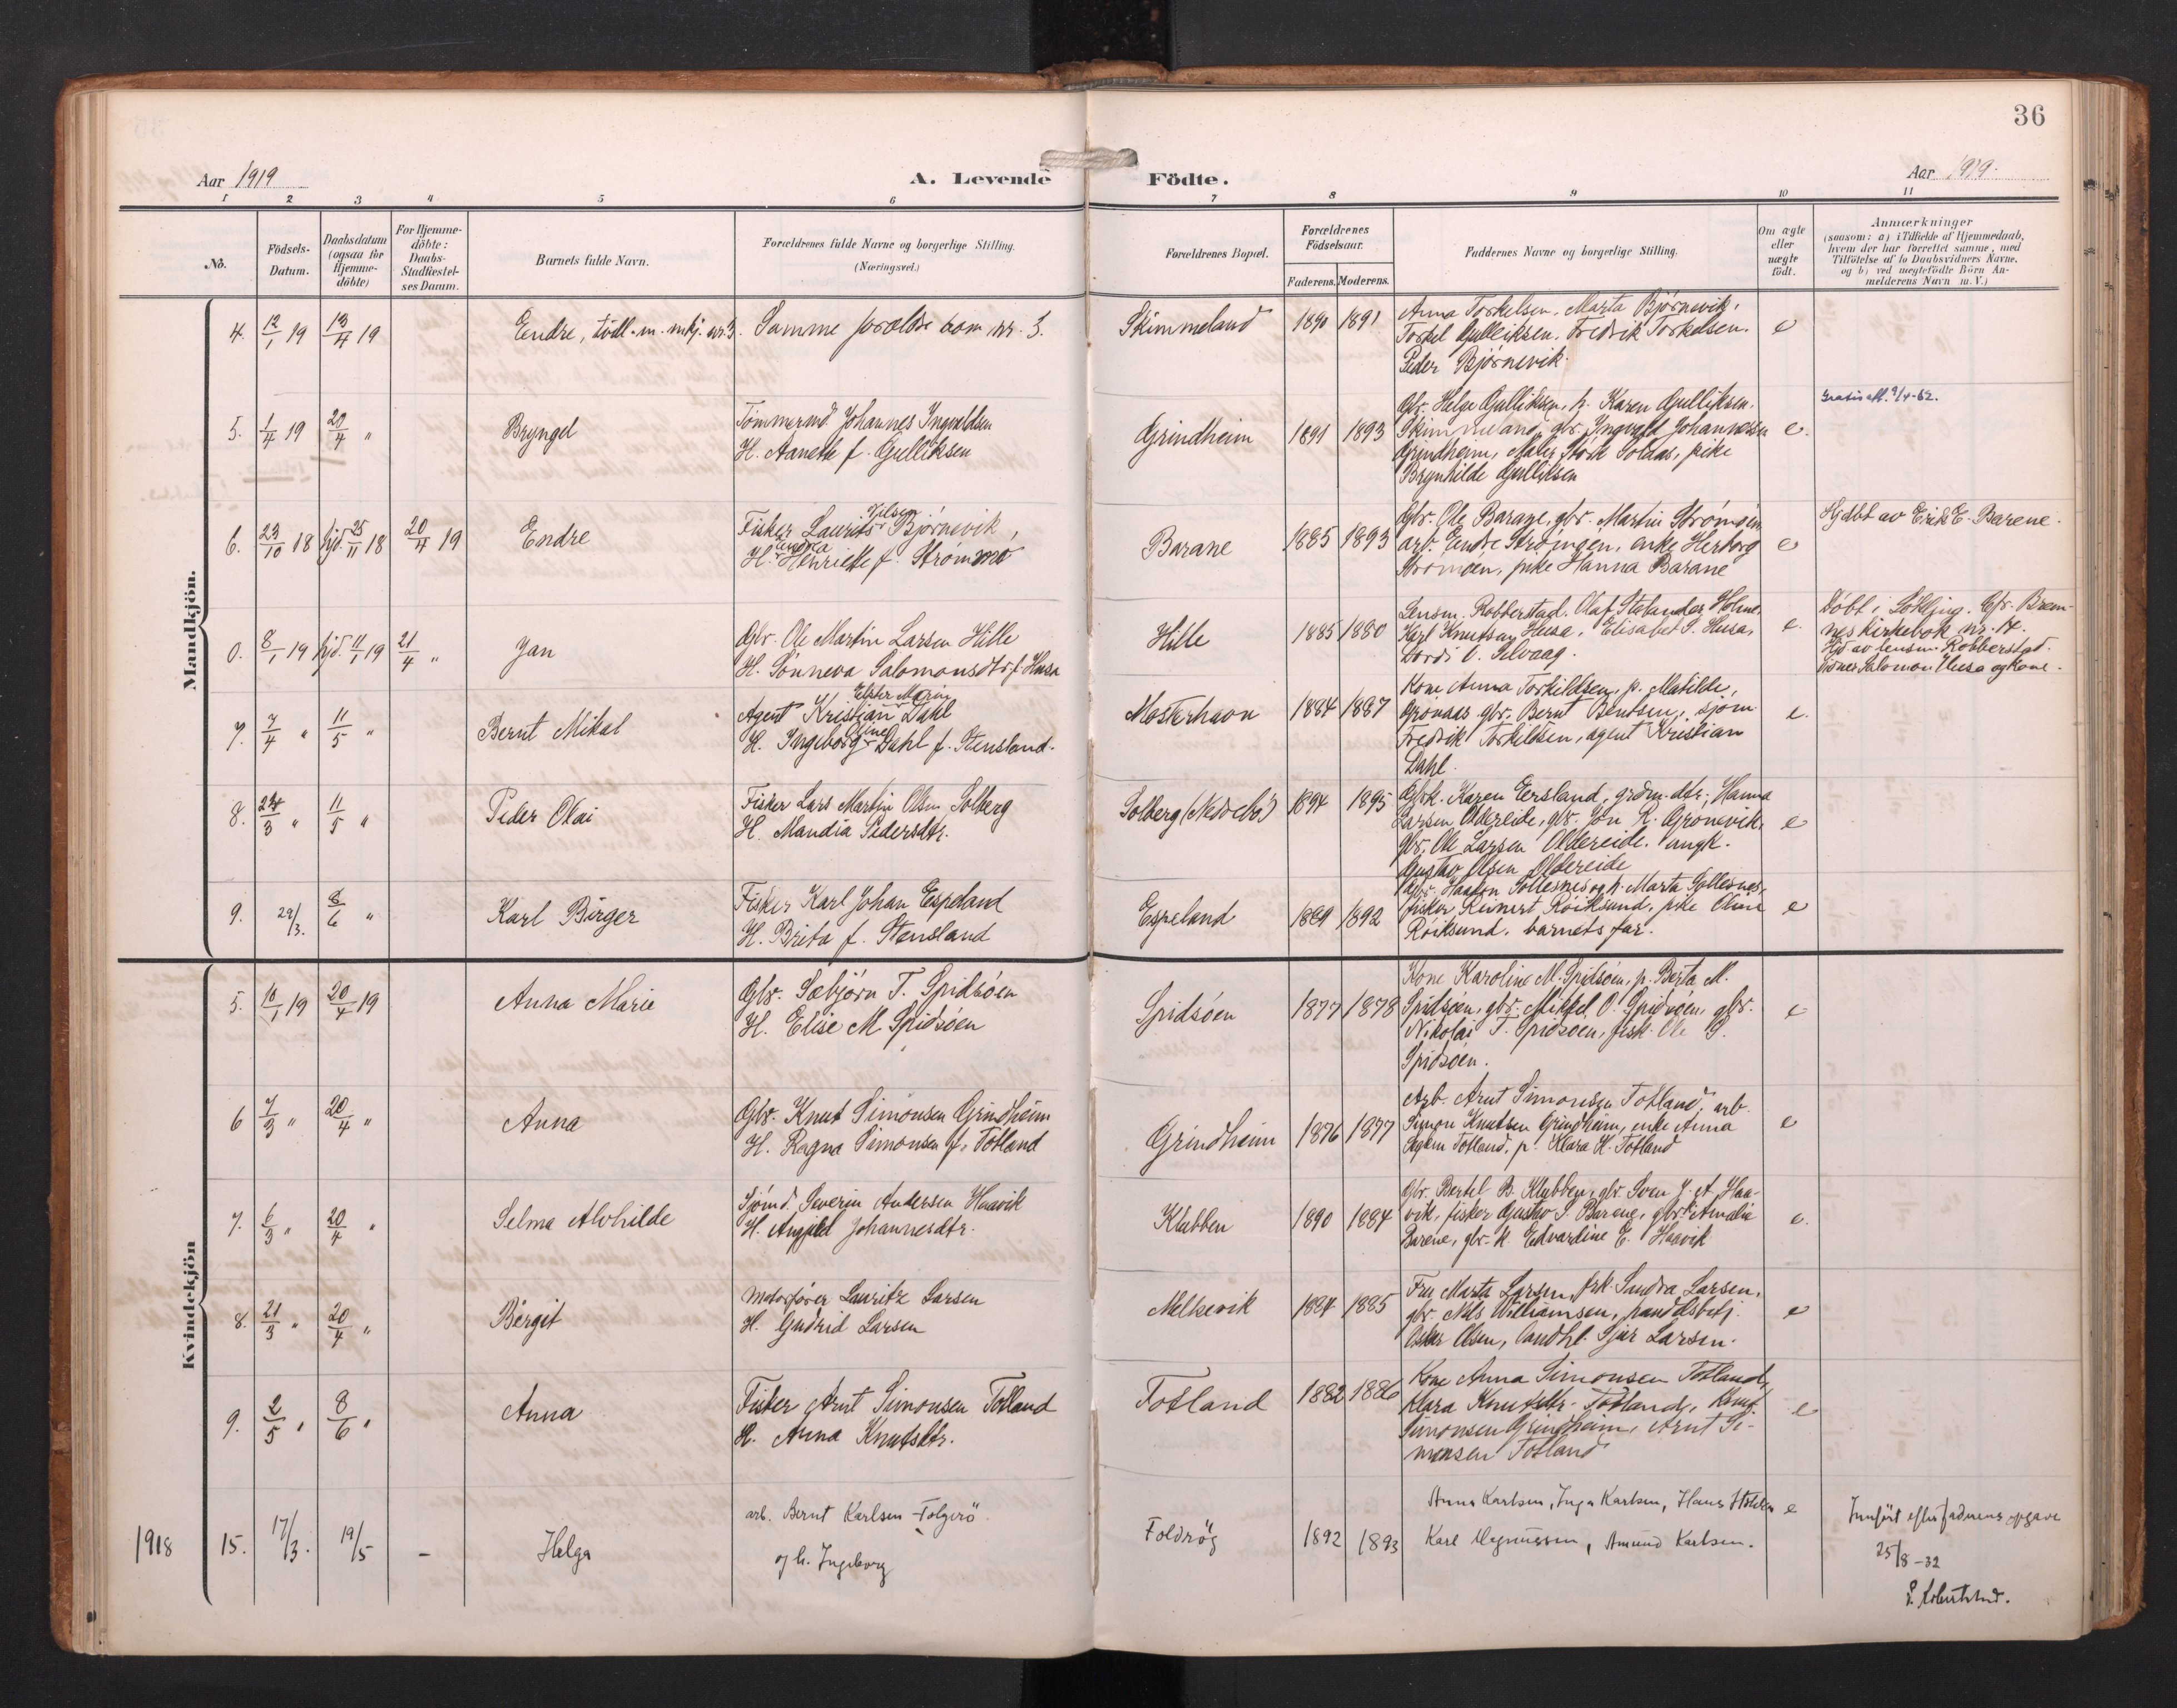 36
Aar 1919
A. Levende Födte.
Aar 1919.
1 2 3 4 5 6 7 8 9 10 11
No.
Födsels-Datum.
Daabsdatum (ogsaa for Hjemme-döbte)
For Hjemme-döbte: Daabs-Stadfæstel-ses Datum.
Barnets fulde Navn.
Forældrenes fulde Navne og borgerlige Stilling.
(Næringsvei.)
Forældrenes Bopæl.
Forældrenes Födselsaar.
Faderens. Moderens.
Faddernes Navne og borgerlige Stilling.
Om ægte eller uægte födt.
Anmærkninger
(saasom: a) i Tilfælde af Hjemmedaab,
hvem der har forrettet samme, med
Tilföielse af to Daabsvidners Navne,
og b) ved uægtefödte Börn An-
melderens Navn m. V.)
Mandkjön.
4. 12/1 19 13/4 19 Endre, tvill. m. mkj. nr. 3. Samme foreldre som nr. 3. Skimmeland 1890 1891
Anna Torkelsen, Marta Bjørnevik,
Torkel Gulleiksen, Fredrik Torkelsen.
Peder Bjørnevik.
e
5. 1/4 19 20/4 " Bryngel
Tømmermd. Johannes Ingvaldsen
H. Aanette f. Gulliksen
Grindheim 1891 1893
Gbr. Helge Gulliksen, h. Karen Gulliksen.
Skimmeland, gbr. Ingvald Johannessen
Grindheim, Maler Goldas, pike
Brynhilde Gulliksen
e.
6. 23/10 18 hjd. 25/11 18 20/4 19 Endre
Fisker Laurits Nilsen Bjørnevik,
H. Andrea Henriette f. Strømmo
Barane 1885 1893
Gbr. Ole Barane, gbr. Martin Strømøen
arb. Endre Strømøen, enke Herborg
Strømøen, pike Hanna Barane
e
Hjdbt av Erik E. Barene.
0. 8/1 19 hjd. 11/1 19 21/4 " Jan
Gbr. Ole Martin Larsen Hille
H. Sønneva Salomonsdtr f. Husa
Hille 1885 1880
Lensm. Robberstad. Olaf Stolander Holme
Karl Knutsen Husa, Elisabet S. Husa,
Lordi O. Selvaag.
e.
Døbt i Løkling. Cfr. Brem-
nes kirkebok nr. 14.
Hjd av lensm Robberstad.
Vidner Salomon Husa og kone.
7. 7/4 " 11/5 " Bernt Mikal
Agent Kristian Elster Marin Dahl
H. Ingeborg Oline Dahl f. Stensland.
Mosterhavn 1884 1887
Kone Anna Torkildsen, p. Matilde,
Grønaas gbr. Bernt Bentsen, sjøm.
Fredrik Torkildsen, agent Kristian
Dahl.
e.
8. 24/3 " 11/5 " Peder Olai
Fisker Lars Martin Olsen Solberg
H. Mandia Pedersdtr.
Solberg (Nedrebø) 1894 1895
Gbrk. Karen Eersland, grdm. dtr. Hanna
Larsen Oldereide, gbr. Jon K. Grønevik,
gbr. Ole Larsen Oldereide. ungk.
Gustav Olsen Oldereide
e
9. 29/3. 8/6 " Karl Birger
Fisker Karl Johan Espeland
H. Brita f. Stensland
Espeland 1889 1892
Gbr. Haakon Sollesnes og h. Marta Sollesnes,
fisker Reinert Røiksund, pike Olina
Røiksund. barnets far.
e
Kvindekjön
5. 10/1 19 20/4 19 Anna Marie
Gbr. Sæbjørn T. Spidsøen
H. Elise M. Spidsøen
Spidsøen 1877 1878
Kone Karoline M. Spidsøen, p. Berta M.
Spidsøen, gbr. Mikkel O. Spidsøen, gbr.
Nikolai T. Spidsøen, fisk. Ole S.
Spidsøen.
e
6 7/3 " 20/4 " Anna
Gbr. Knut Simonsen Grindheim
H. Ragna Simonsen f. Totland
Grindheim 1876 1877
Arb. Arnt Simonsen Totland, arb.
Simon Knutsen Grindheim, enke Anna
Totland, p. Klara K. Totland
e
7. 6/3 " 20/4 " Selma Alvhilde
Sjømd. Severin Andersen Haavik
H. Johannesdtr.
Klubben 1890 1884
Gbr. Bertel B. Klubben, gbr. Sven J. A. Haa-
vik, fisker Gustav S. Barene, gbrk Amalie
Barene, gbr. k. Edvardine E. Haavik
e.
8. 21/3 " 20/4 " Bergit
Motorfører Lauritz Larsen
H. Gudrid Larsen
Melkevik 1884 1885
Fru Marta Larsen, frk. Sundra Larsen,
gbr. Nils Williamsen, handelsbetj.
Oskar Olsen, landhl. Sjur Larsen.
e
9. 2/5 " 8/6 " Anna
Fisker Arnt Simonsen Totland
H. Anna Knutsdtr.
Totland 1882 1886
Kone Anna Simonsen Totland,
Klara Knutsdtr. Totland, Knut
Simonsen Grindheim, Arnt Si-
monsen Totland
e
1918 15. 17/3. 19/5 - Helga
arb. Bernt Karlsen Folgerö
og h. Ingeborg
Foldrög 1892 1893
Anna Karlsen, Inga Karlsen, Hans
Karl Magnussen, Amund Karlsen.
e
Innfört efter fadrenes opgave
25/8-32